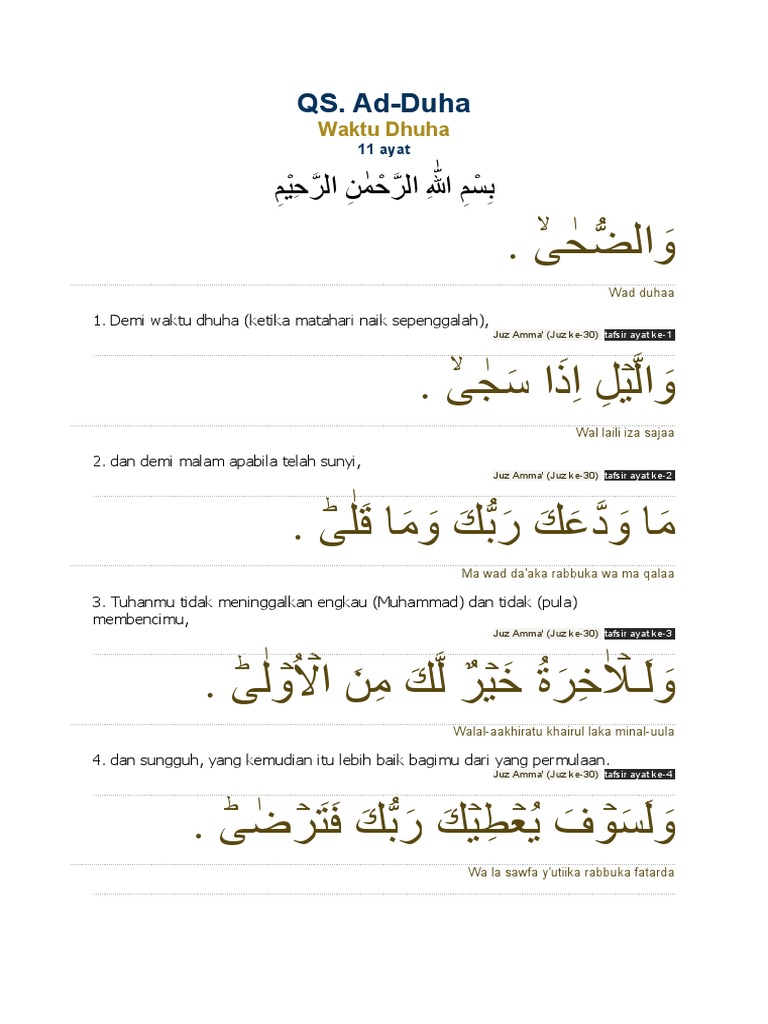 QS. Ad-Duha
Waktu Dhuha
11 ayat
بِسْمِ اللّٰهِ الرَّحْمٰنِ الرَّحِيْمِ
وَالضُّحٰىۙ .
Wad duhaa
1. Demi waktu dhuha (ketika matahari naik sepenggalah),
Juz Amma' (Juz ke-30) tafsir ayat ke-1
وَالَّيْلِ اِذَا سَجٰىۙ .
Wal laili iza sajaa
2. dan demi malam apabila telah sunyi,
Juz Amma' (Juz ke-30) tafsir ayat ke-2
مَا وَدَّعَكَ رَبُّكَ وَمَا قَلٰىۗ .
Ma wad da'aka rabbuka wa ma qalaa
3. Tuhanmu tidak meninggalkan engkau (Muhammad) dan tidak (pula)
membencimu,
Juz Amma' (Juz ke-30) tafsir ayat ke-3
وَلَـلْاٰخِرَةُ خَيْرٌ لَّكَ مِنَ الْاُوْلٰىۗ .
Walal-aakhiratu khairul laka minal-uula
4. dan sungguh, yang kemudian itu lebih baik bagimu dari yang permulaan.
Juz Amma' (Juz ke-30) tafsir ayat ke-4
وَلَسَوْفَ يُعْطِيْكَ رَبُّكَ فَتَرْضٰىۗ .
Wa la sawfa y'utiika rabbuka fatarda